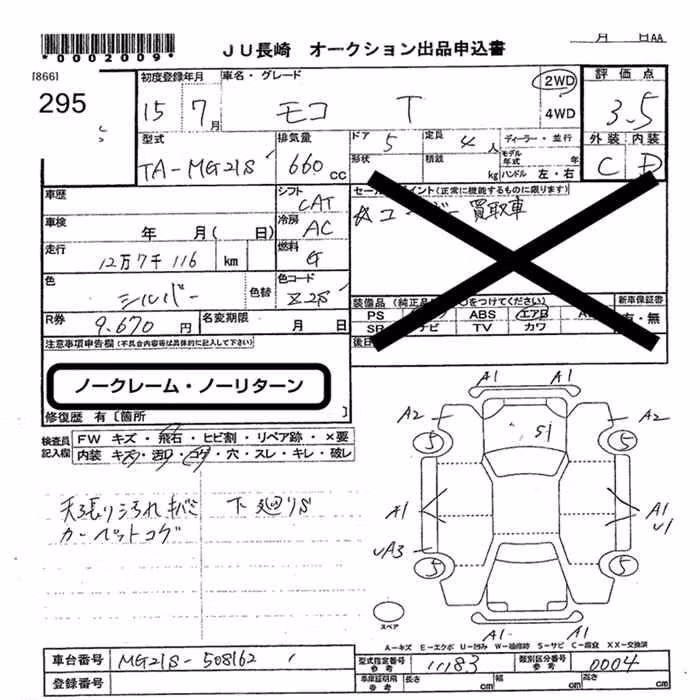 *0002009*
JU長崎 オークション出品申込書
月 日AA
[866]
295
初度登録年月 車名・グレード 評価点
15 7月 モコ T 2WD 4WD 3.5
型式 排気量 ドア 5 定員 4人 ディーラー・並行 外装 内装
TA-MG21S 660cc 形状 積載 kg モデル年式 年 ハンドル 左・右 C D
車歴 シフト CAT セールスポイント(正常に機能するものに限ります)
車検 年 月(日) 冷房 AC 買取車
走行 12万7千116 km 燃料 G
色 シルバー 色替 色コード Z2S 装備品 新車保証書
PS ABS エアB
R券 9,670円 名変期限 月 日 SR ナビ TV カワ 有・無
注意事項申告欄(不具合内容等は具体的に記入して下さい) 後日
ノークレーム・ノーリターン
修復歴 有〔箇所 〕
検査員記入欄 FW キズ・飛石・ヒビ割・リペア跡・×要
内装 キズ・汚レ・コゲ・穴・スレ・キレ・破レ
天張り汚れキバミ 下廻りS
カーペットコゲ
A1 A1
A2 A2
S1
5 5
A1 A1
U1
UA3
5 5
スペア
A1 A1
A-キズ E-エクボ U-凹み W-補修跡 S-サビ C-腐食 XX-交換済
車台番号 MG21S-508162 型式指定番号 参考 11183 類別区分番号 参考 0004
登録番号 車庫証明用 参考 長さ cm 幅 cm 高さ cm